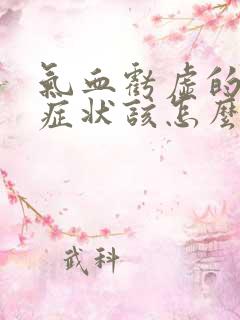 氣血虧虚的
症状該怎麼
武科